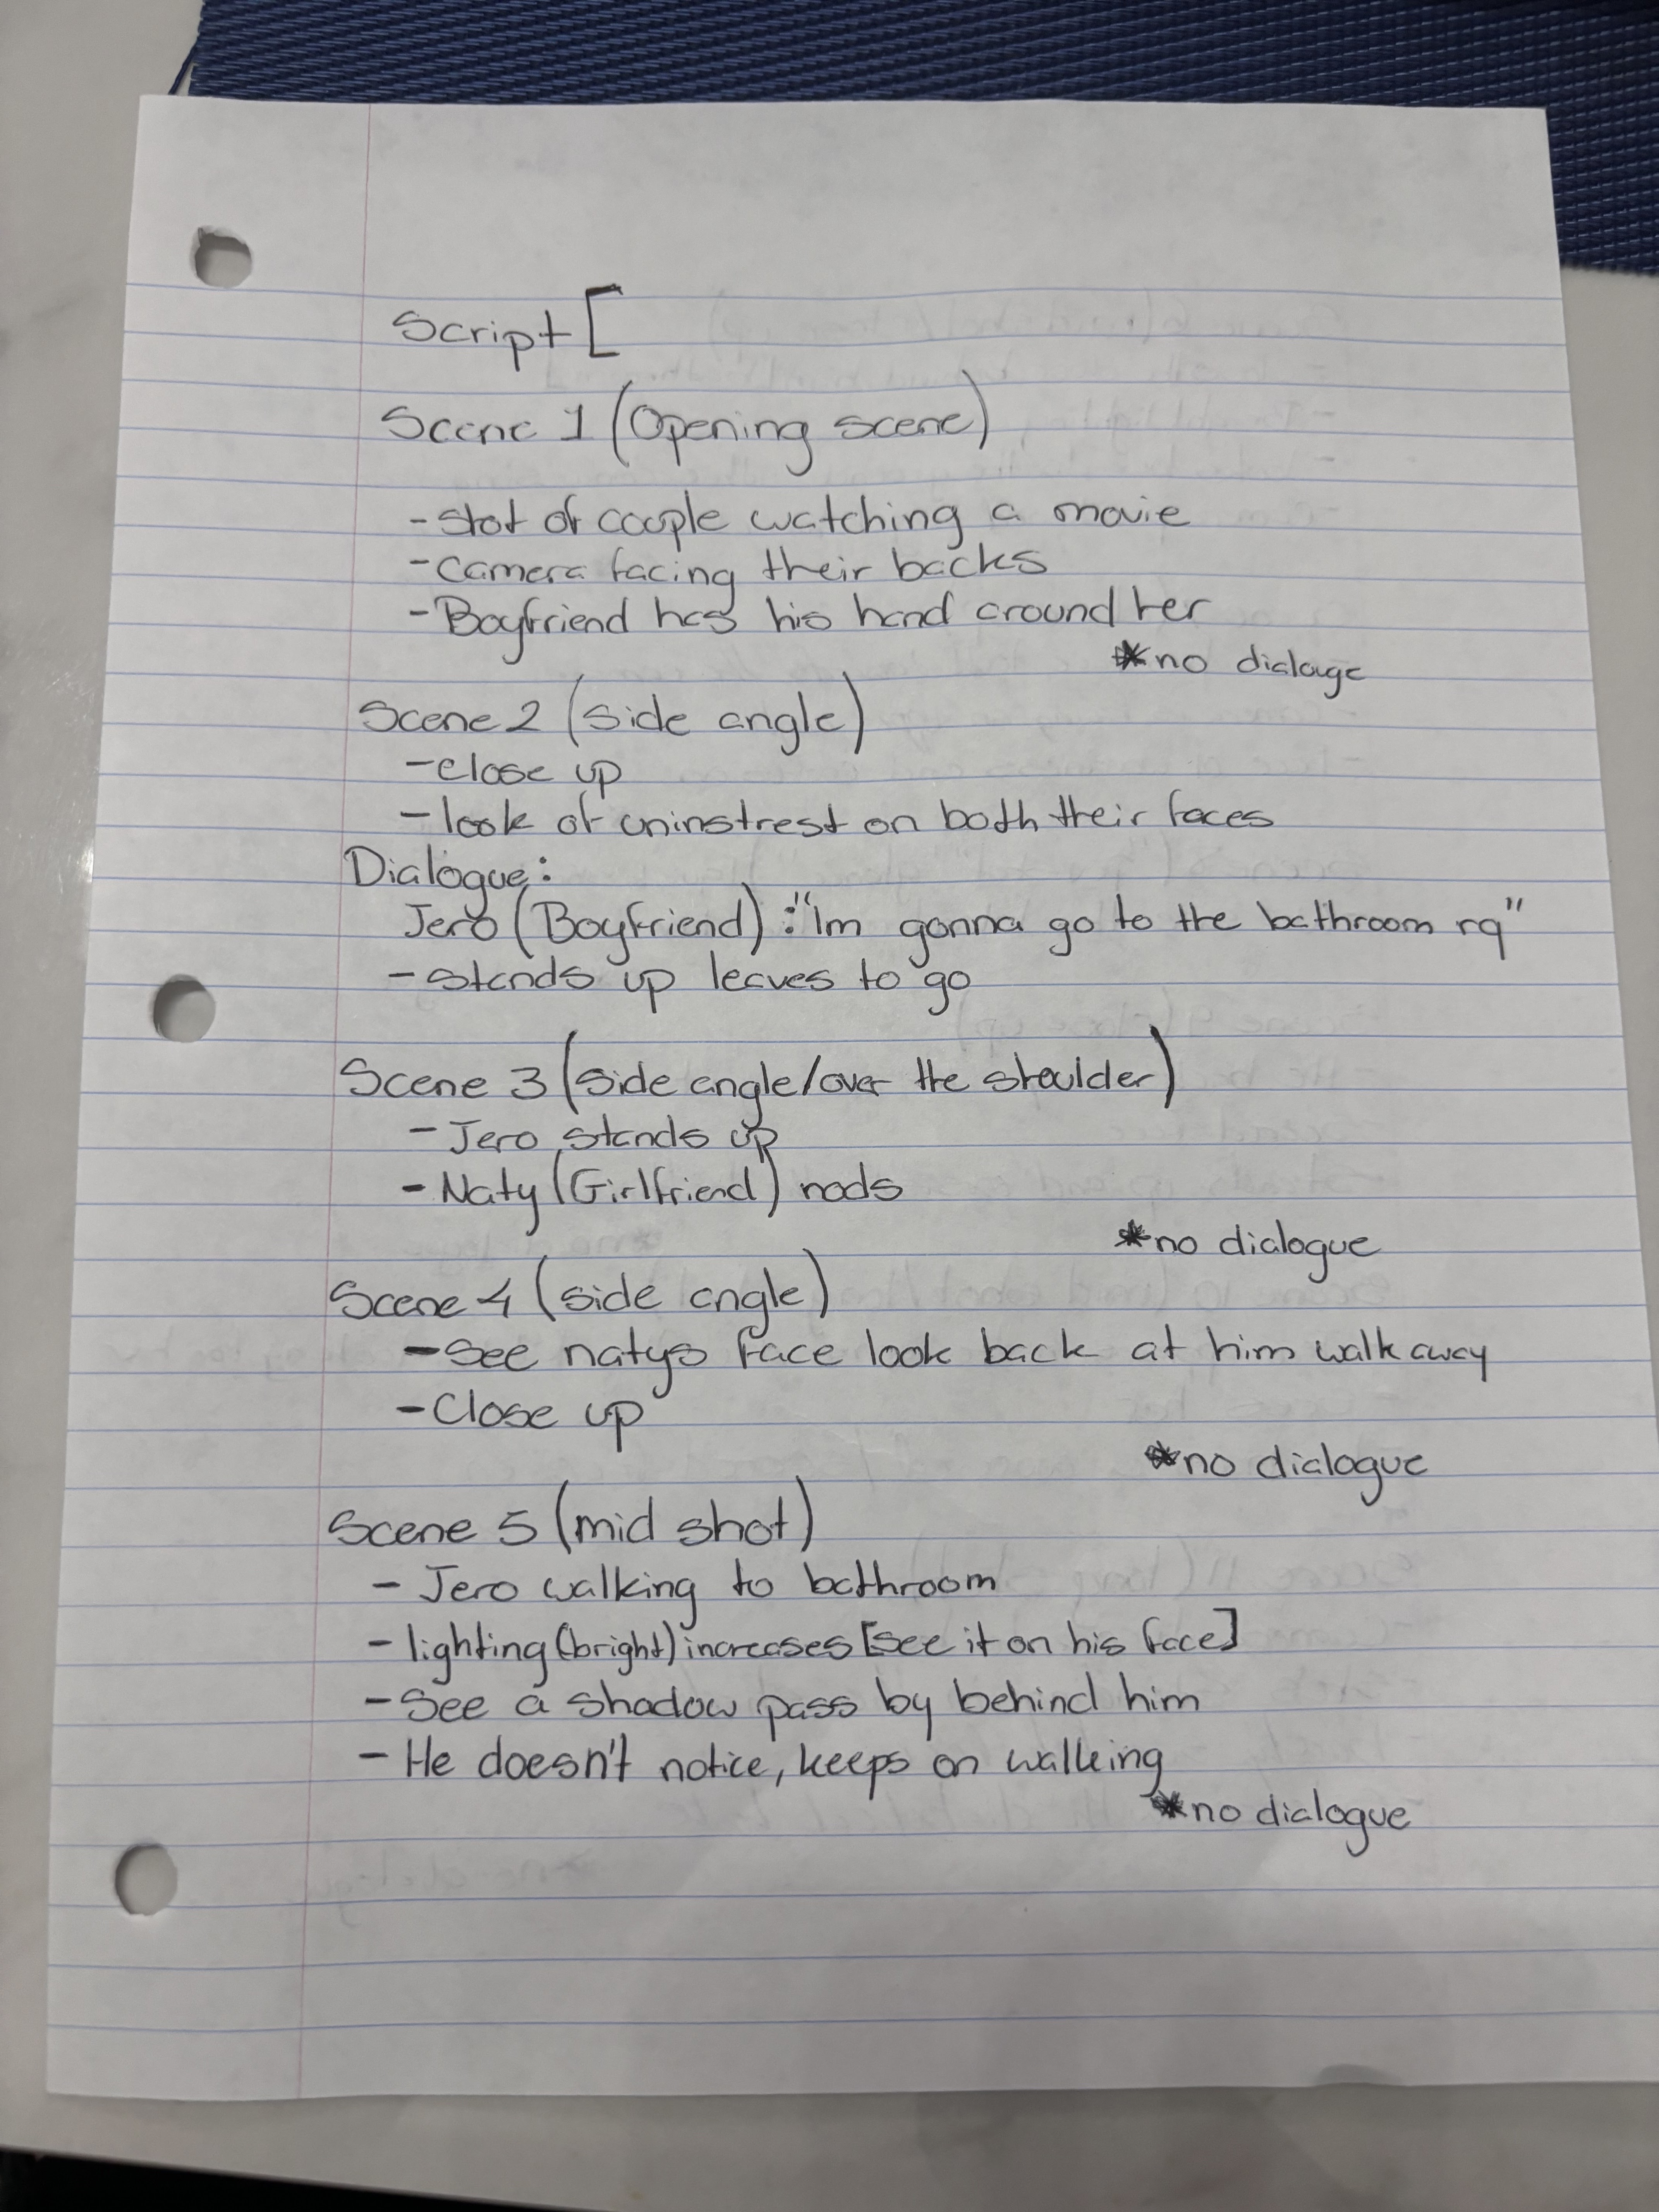 Script [
Scene 1 (Opening scene)
- Shot of couple watching a movie
- Camera facing their backs
- Boyfriend has his hand around her
*no dialouge
Scene 2 (side angle)
- close up
- look of uninstrest on both their faces
Dialogue:
Jero (Boyfriend): "Im gonna go to the bathroom rq"
- stands up leaves to go
Scene 3 (side angle/over the shoulder)
- Jero stands up
- Naty (Girlfriend) nods
*no dialogue
Scene 4 (side angle)
- See natys face look back at him walk away
- Close up
*no dialogue
Scene 5 (mid shot)
- Jero walking to bathroom
- lighting (bright) increases [see it on his face]
- See a shadow pass by behind him
- He doesn't notice, keeps on walking
*no dialogue